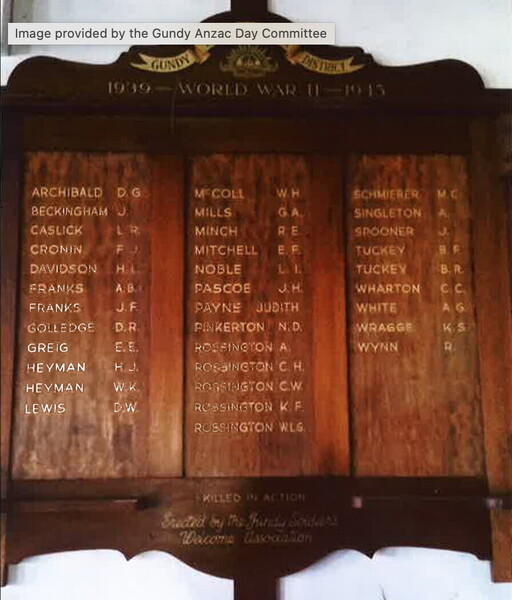 Image provided by the Gundy Anzac Day Committee
GUNDY DISTRICT
1939 — WORLD WAR II — 1945
ARCHIBALD D.G.
BECKINGHAM J.
CASLICK L.R.
CRONIN F.J.
DAVIDSON H.L.
FRANKS A.B.
FRANKS J.F.
GOLLEDGE D.R.
GREIG E.E.
HEYMAN H.J.
HEYMAN W.K.
LEWIS D.W.
McCOLL W.H.
MILLS G.A.
MINCH R.E.
MITCHELL E.F.
NOBLE L.I.
PASCOE J.H.
PAYNE JUDITH
PINKERTON N.D.
ROSSINGTON A.
ROSSINGTON C.H.
ROSSINGTON C.W.
ROSSINGTON K.F.
ROSSINGTON W.L.G.
SCHMIERER M.C.
SINGLETON A.
SPOONER J.
TUCKEY B.F.
TUCKEY B.R.
WHARTON C.C.
WHITE A.G.
WRAGGE K.S.
WYNN R.
KILLED IN ACTION
Erected by the Gundy Soldiers
Welcome Association